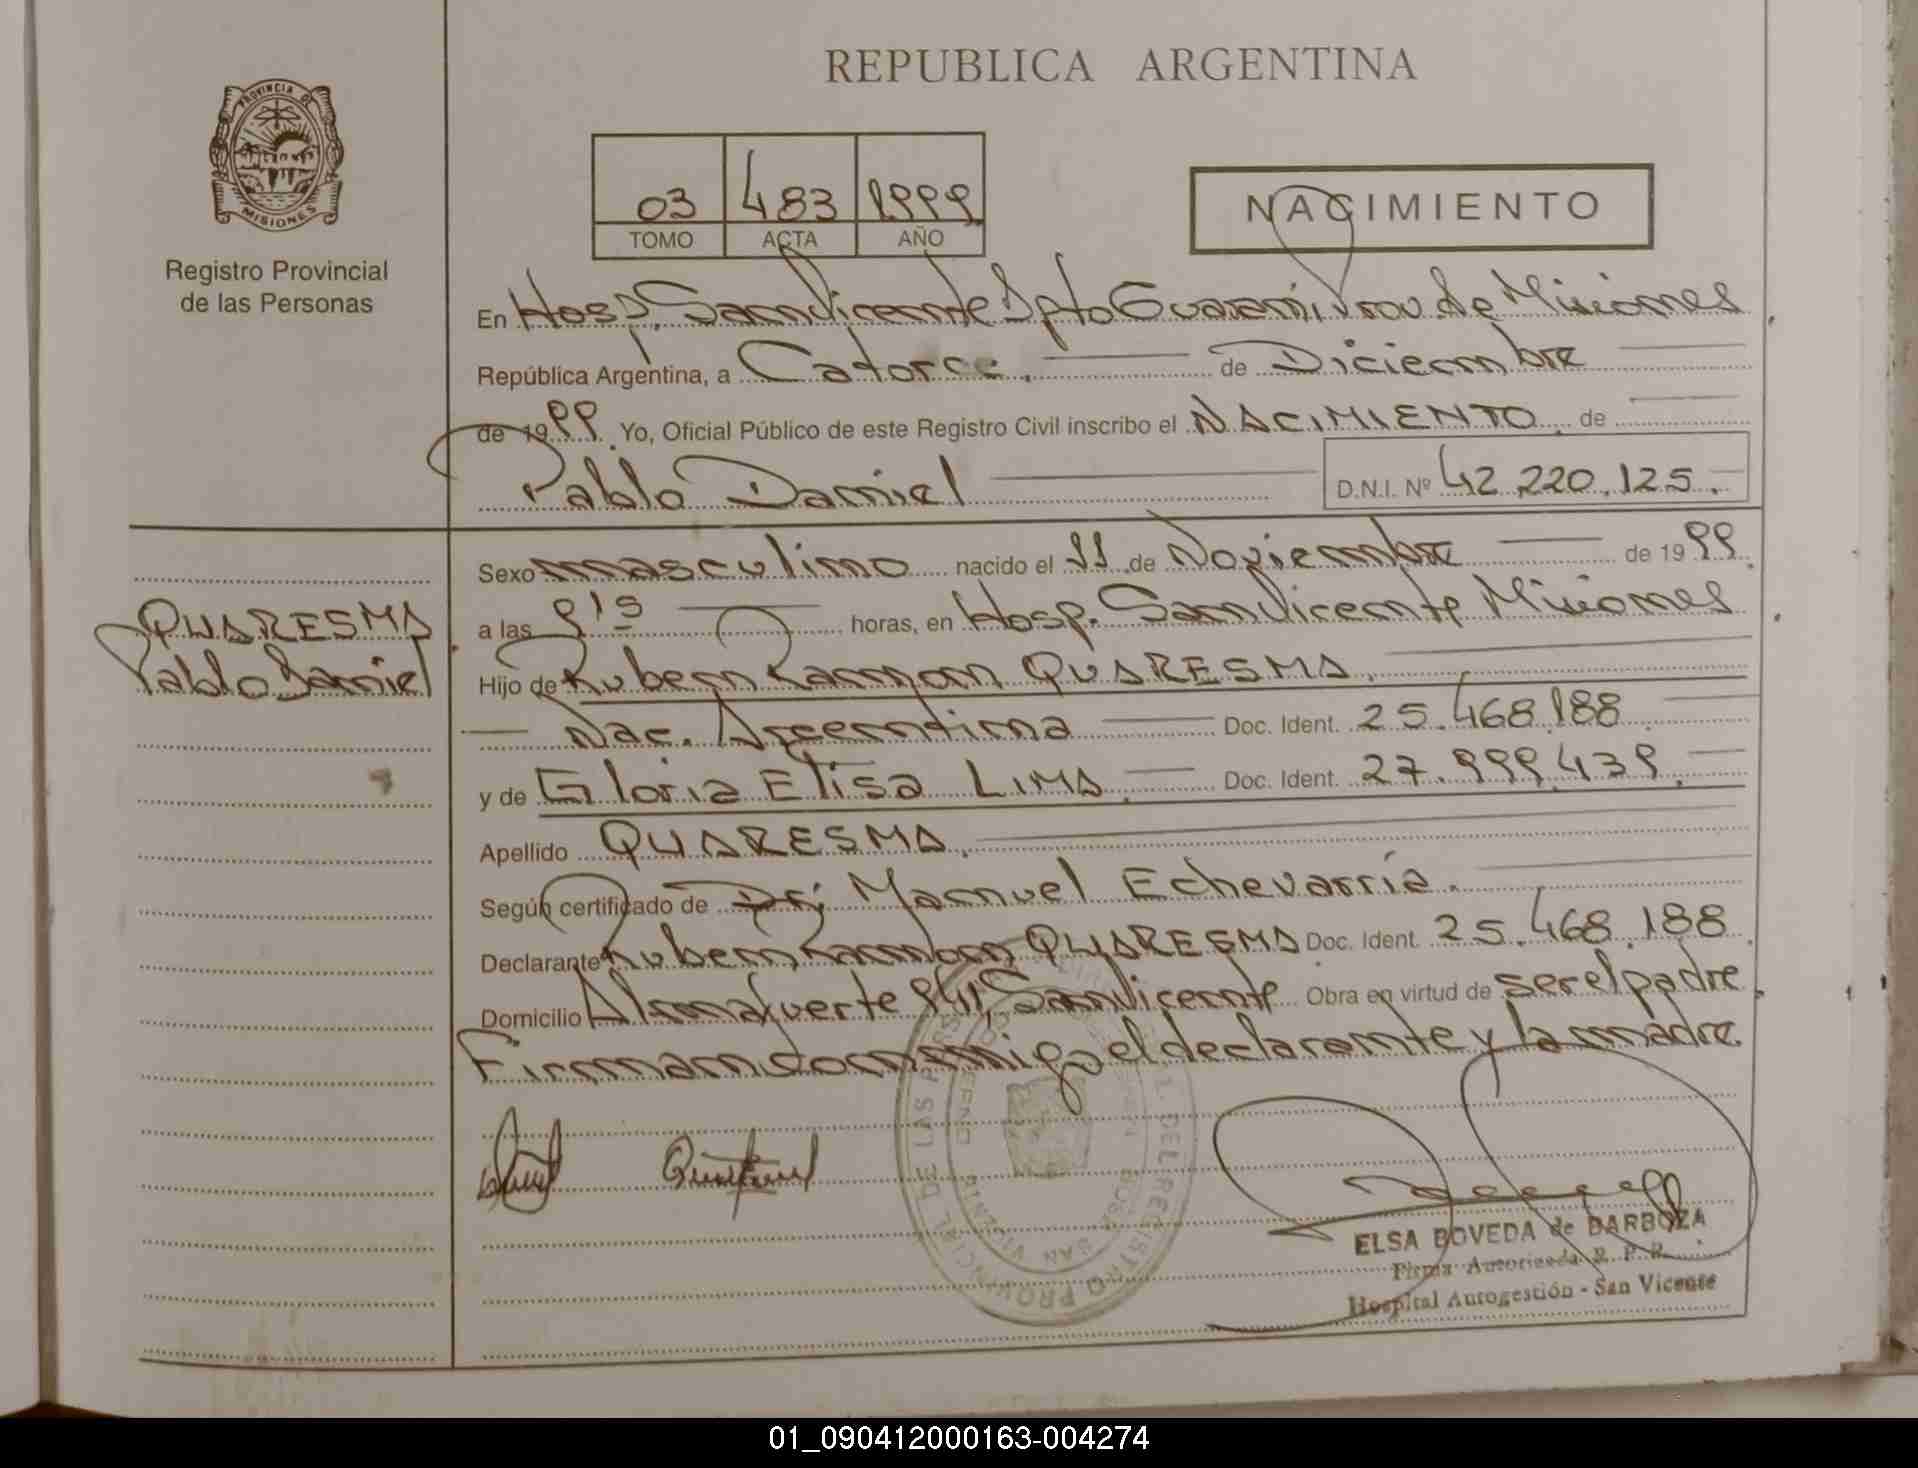 REPUBLICA ARGENTINA
PROVINCIA DE
MISIONES
Registro Provincial
de las Personas
03 483 1999
TOMO ACTA AÑO
NACIMIENTO
En Hosp. San Vicente Dpto Guaraní, Prov. de Misiones
República Argentina, a Catorce. de Diciembre
de 1999. Yo, Oficial Público de este Registro Civil inscribo el NACIMIENTO. de
Pablo Daniel D.N.I. Nº 42.220.125.
Sexo masculino nacido el 11 de Noviembre de 1999.
QUARESMA
Pablo Daniel
a las horas, en Hosp. San Vicente Misiones
Hijo de Ruben Ramon QUARESMA.
Nac. Argentina Doc. Ident. 25.468.188
y de Gloria Elisa LIMA. Doc. Ident. 27.999.439.
Apellido QUARESMA.
Según certificado de Dr; Manuel Echevarría.
Declarante Ruben Ramon QUARESMA Doc. Ident. 25.468.188.
Domicilio Almafuerte 941, San Vicente Obra en virtud de ser el padre
Firman conmigo el declarante y la madre.
ELSA BOVEDA de BARBOZA
Firma Autorizada R. P. P.
Hospital Autogestión - San Vicente
01_090412000163-004274